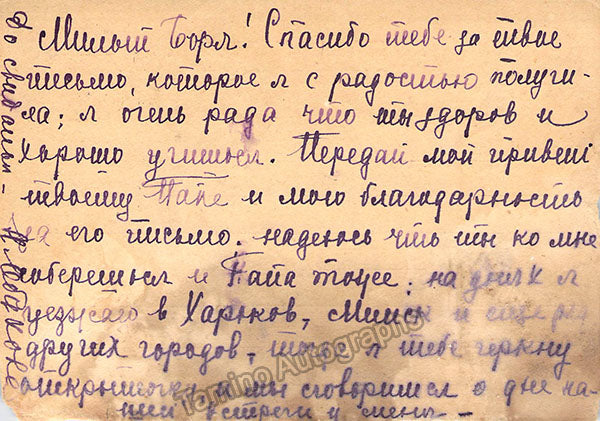 Милый Боря! Спасибо тебе за твое
письмо, которое я с радостью получи-
ла; я очень рада что ты здоров и
хорошо учишься. Передай мой привет
твоему Папе и мою благодарность
за его письмо. Надеюсь что ты ко мне
соберешься и Папа тоже; на днях я
уезжаю в Харьков, Минск и еще
других городов, тогда я тебе черкну
открыточку и мы сговоримся о дне на-
шей встречи у меня —
До свиданья —
Tamino Autographs